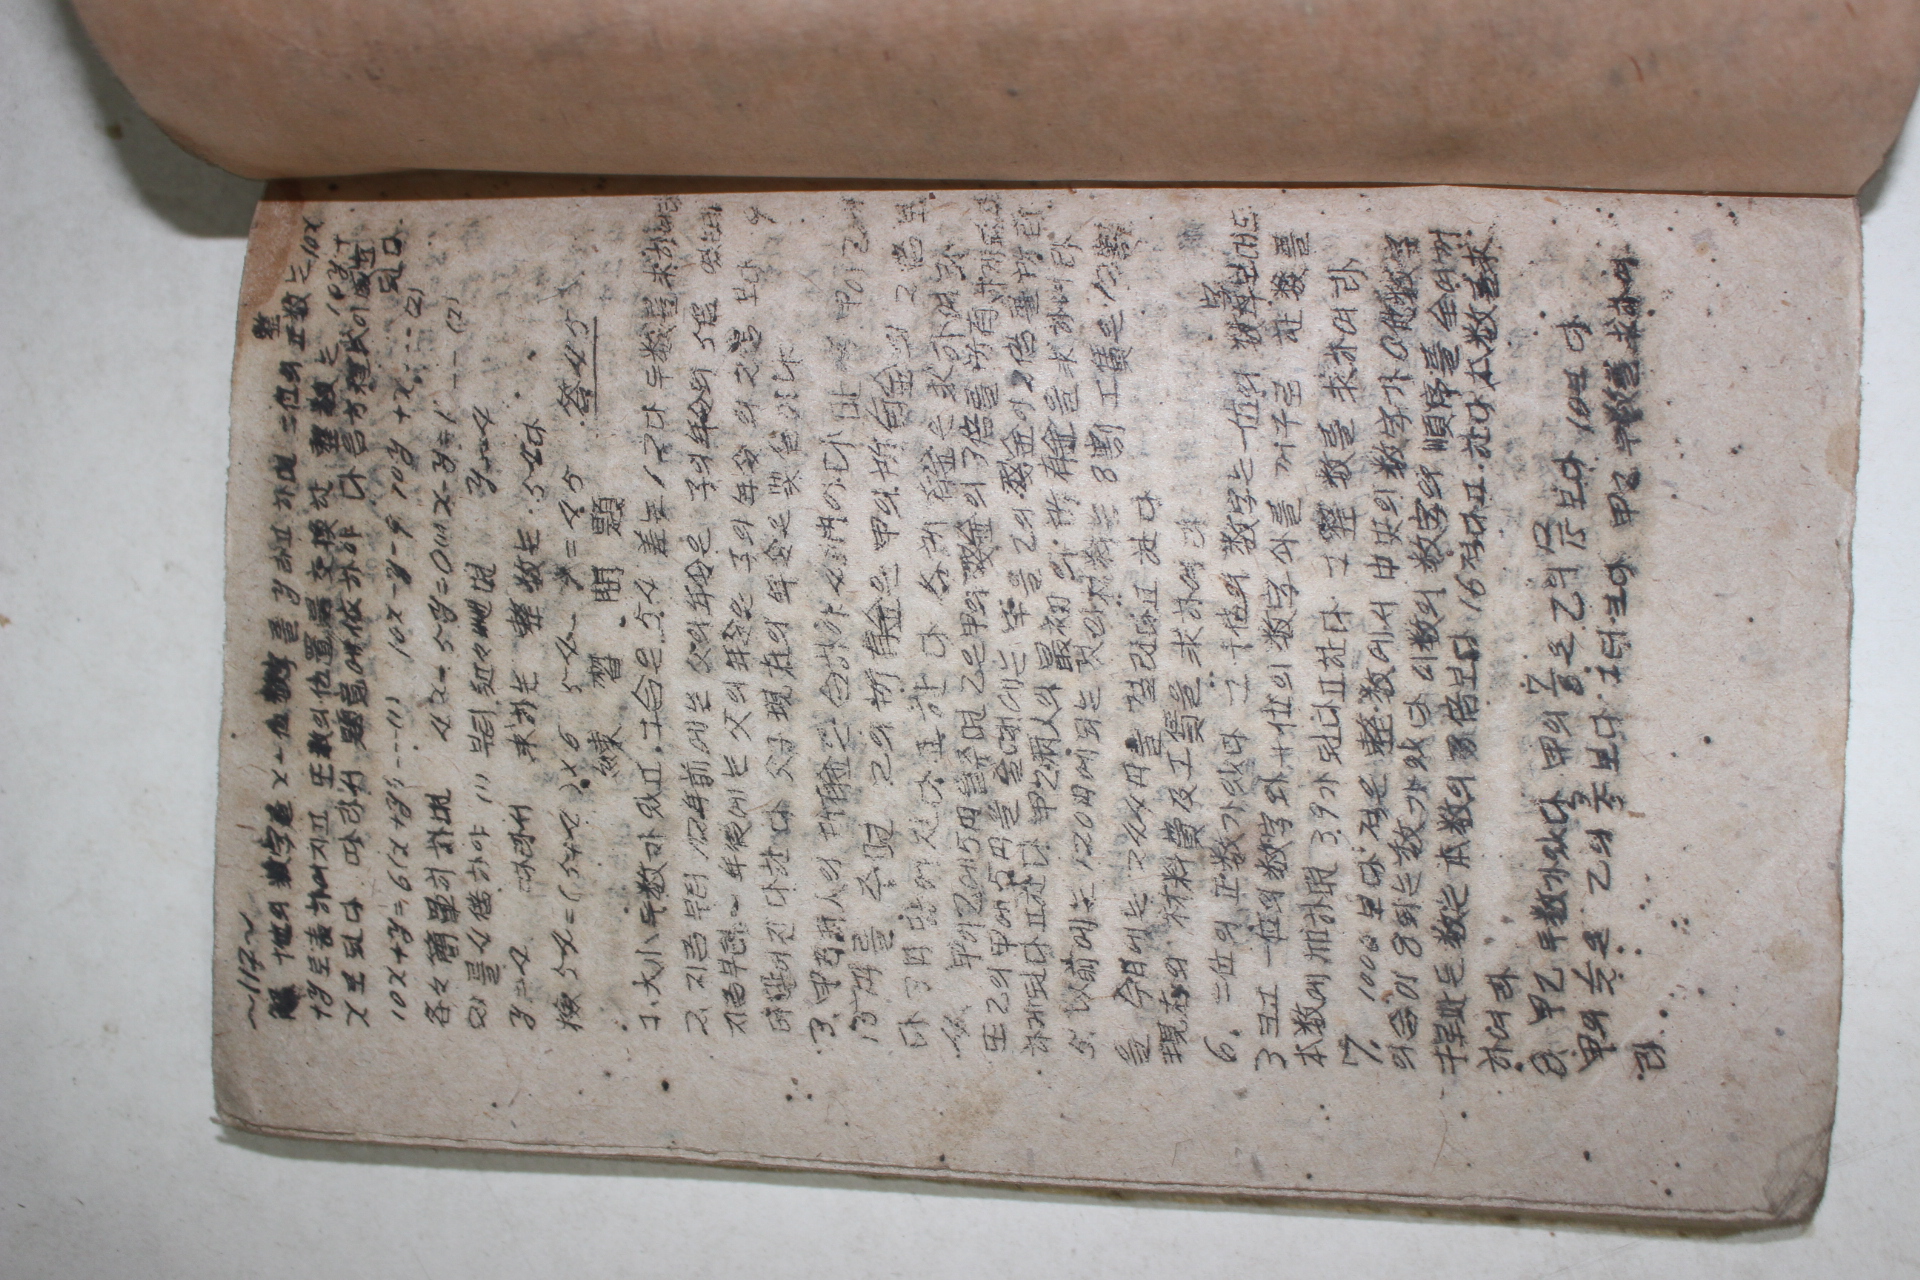 ~117~
解 十位의 数字를 x 一位数字를 y라고 하면 二位의 正整数는 10x
+y로 表하여지고 또 数의 位置를 交換한 整数는 10y+
x로 된다 따라서 題意에 依하야 다음 方程式이 成立
된다.
10x+y=6(x+y) ----(1) 10x-y-9 10y+x ---- (2)
各々 簡單히 하면 4x-5y=0 (1) x-y=1 --- (2)
(2)를 4倍하야 (1)부터 빼면 y=4
y=4 따라서 求하는 整数는 54다
検 54=(5+4)×6 54-9=45 答45
練習問題
1. 大小 두数가 있고 그合은 54 差는 12다 두数를 求하여라
2. 지금부터 12年前에는 父의 年令은 子의 年令의 5倍
지금부터 年後에는 父의 年令은 子의 年令의 2倍 보다 9
어진다 한다 父子 現在의 年令은 몇살이냐
3. 甲乙両人의 所有金은 合하야 45円이다 만 甲이 乙에
15円를 주면 乙의 所有金은 甲의 所有金의 2倍보
다 3円 많어진다고 한다 各 所有金은 求하여라
4. 甲이 乙에 5円을 주면 乙은 甲의 残金의 3倍를 所有하게 되고
또 乙의 甲에 5円을 줄때에는 甲을 乙의 残金이 2倍를 所有
하게 된다고 한다 甲乙両人의 最初의 所有金을 求하여라
5. 以前에는 120円에 되는 것의 材料는 8割 工賃은 12割
을 今日에는 244円을 걸린다고 한다
現在의 材料費及工賃을 求하여라
6. 二位의 正数가 있다 그 十位의 数字는 一位의 数字보대도
3크고 一位의 数字와 十位의 数字와를 꺼구로 한 数를
本数에 加하면 39가 된다고 한다 그 整数를 求하여라
7. 1000보다 적은 整数에서 中央의 数字가 0他数字
의 合이 8되는 数가 있다 이数의 数字의 順序를 全여꺼
꾸로 만든 数는 本数의 3倍보다 16적다고 한다 本数를 求
하여라
8. 甲乙 두数가 있다 甲의 7/8은 乙의 12/15보다 10크다
甲의 은 乙의 보다 크다 甲乙 두数를 求하여
라.